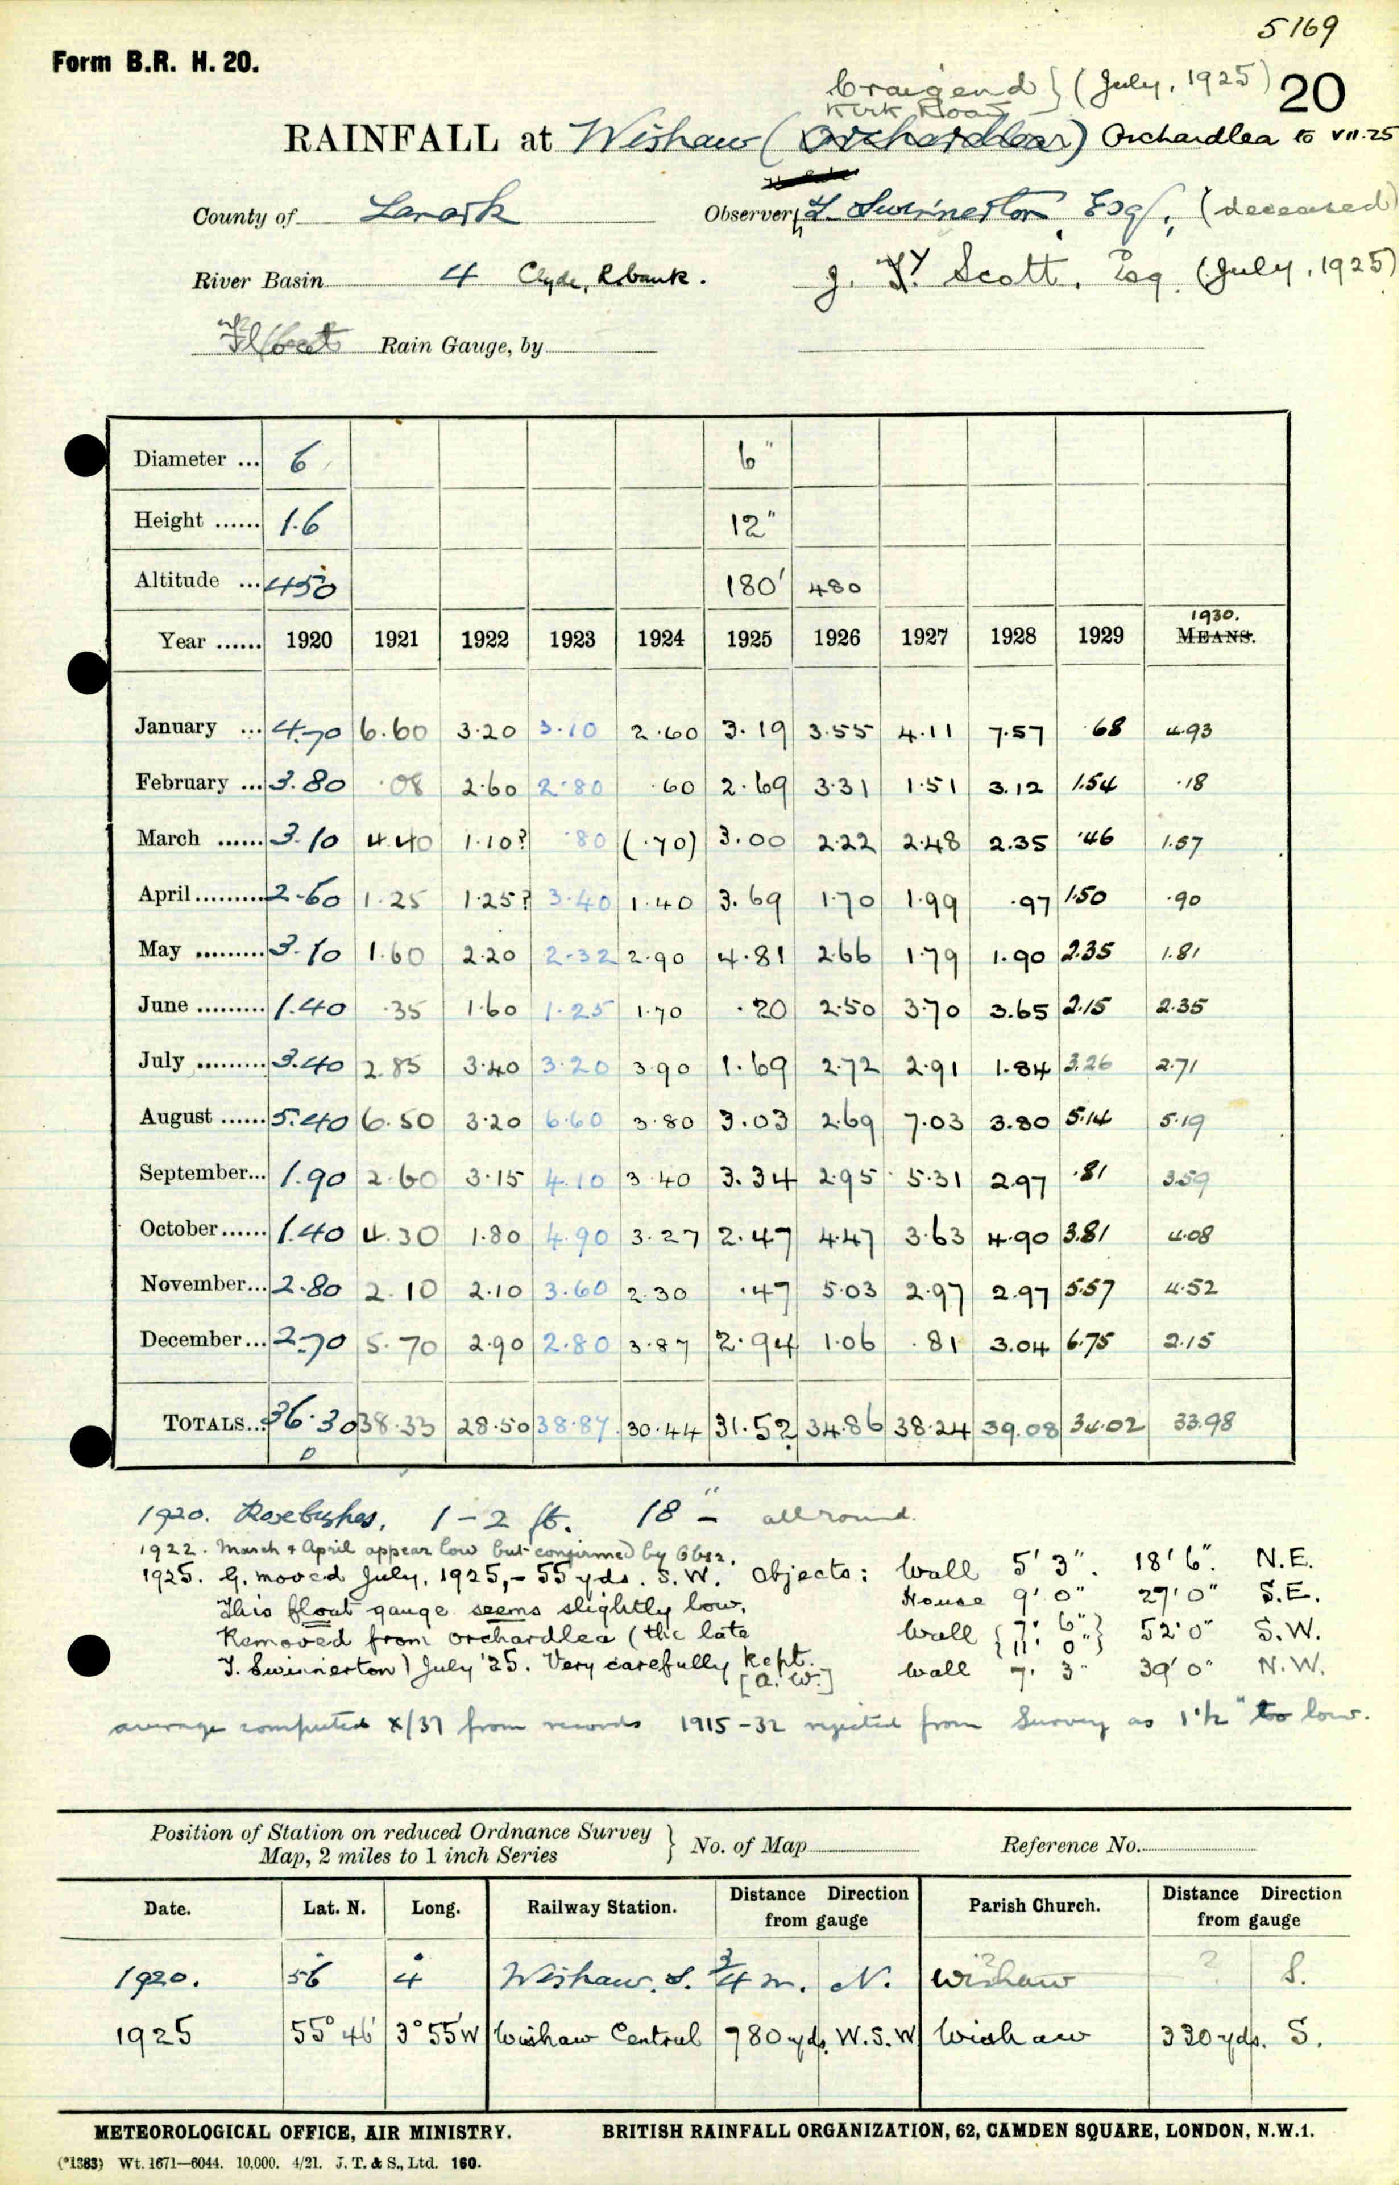 5169
Form B.R. H. 20.
Craigend } (July, 1925) 20
Kirk Road
RAINFALL at Wishaw (Orchardlea) Orchardlea to VII.25
County of Lanark Observer, T. Swinnerton, Esq., (deceased)
River Basin 4 Clyde, R. bank. J. Y. Scott, Esq. (July, 1925)
Float Rain Gauge, by
Diameter ... 6 6"
Height ...... 1.6 12"
Altitude ... 450 180' 480
1930.
Year ...... 1920 1921 1922 1923 1924 1925 1926 1927 1928 1929 MEANS.
January ... 4.70 6.60 3.20 3.10 2.60 3.19 3.55 4.11 7.57 .68 4.93
February ... 3.80 .08 2.60 2.80 .60 2.69 3.31 1.51 3.12 1.54 .18
March ...... 3.10 4.40 1.10? .80 (.70) 3.00 2.22 2.48 2.35 .46 1.57
April ......... 2.60 1.25 1.25? 3.40 1.40 3.69 1.70 1.99 .97 1.50 .90
May ......... 3.10 1.60 2.20 2.32 2.90 4.81 2.66 1.79 1.90 2.35 1.81
June ......... 1.40 .35 1.60 1.25 1.70 .20 2.50 3.70 3.65 2.15 2.35
July ......... 3.40 2.85 3.40 3.20 3.90 1.69 2.72 2.91 1.84 3.26 2.71
August ...... 5.40 6.50 3.20 6.60 3.80 3.03 2.69 7.03 3.80 5.14 5.19
September... 1.90 2.60 3.15 4.10 3.40 3.34 2.95 5.31 2.97 .81 3.59
October...... 1.40 4.30 1.80 4.90 3.27 2.47 4.47 3.63 4.90 3.81 4.08
November... 2.80 2.10 2.10 3.60 2.30 .47 5.03 2.97 2.97 5.57 4.52
December... 2.70 5.70 2.90 2.80 3.87 2.94 1.06 .81 3.04 6.75 2.15
TOTALS... 36.30 38.33 28.50 38.87 30.44 31.52 34.86 38.24 39.08 34.02 33.98
1920. Rosebushes, 1 – 2 ft. 18" – all round.
1922. March & April appear low but confirmed by Obsr.
1925. G. moved July, 1925, – 55 yds. S.W. Objects: Wall 5' 3". 18' 6". N.E.
This float gauge seems slightly low. House 9' 0" 27' 0" S.E.
Removed from Orchardlea (the late Wall {7' 6" 11' 0"} 52' 0" S.W.
T. Swinnerton) July '25. Very carefully kept. Wall 7' 3" 39' 0" N.W.
[A.W.]
average computed X/37 from records 1915–32 rejected from Survey as 1½" too low.
Position of Station on reduced Ordnance Survey Map, 2 miles to 1 inch Series } No. of Map Reference No.
Date. Lat. N. Long. Railway Station. Distance Direction from gauge Parish Church. Distance Direction from gauge
1920. 56° 4° Wishaw. S. 3/4 m. N. Wishaw ? ? S.
1925 55° 46' 3° 55'W Wishaw Central 780 yds. W.S.W Wishaw 330 yds. S.
METEOROLOGICAL OFFICE, AIR MINISTRY. BRITISH RAINFALL ORGANIZATION, 62, CAMDEN SQUARE, LONDON, N.W.1.
(*1383) Wt. 1671—6044. 10,000. 4/21. J. T. & S., Ltd. 160.